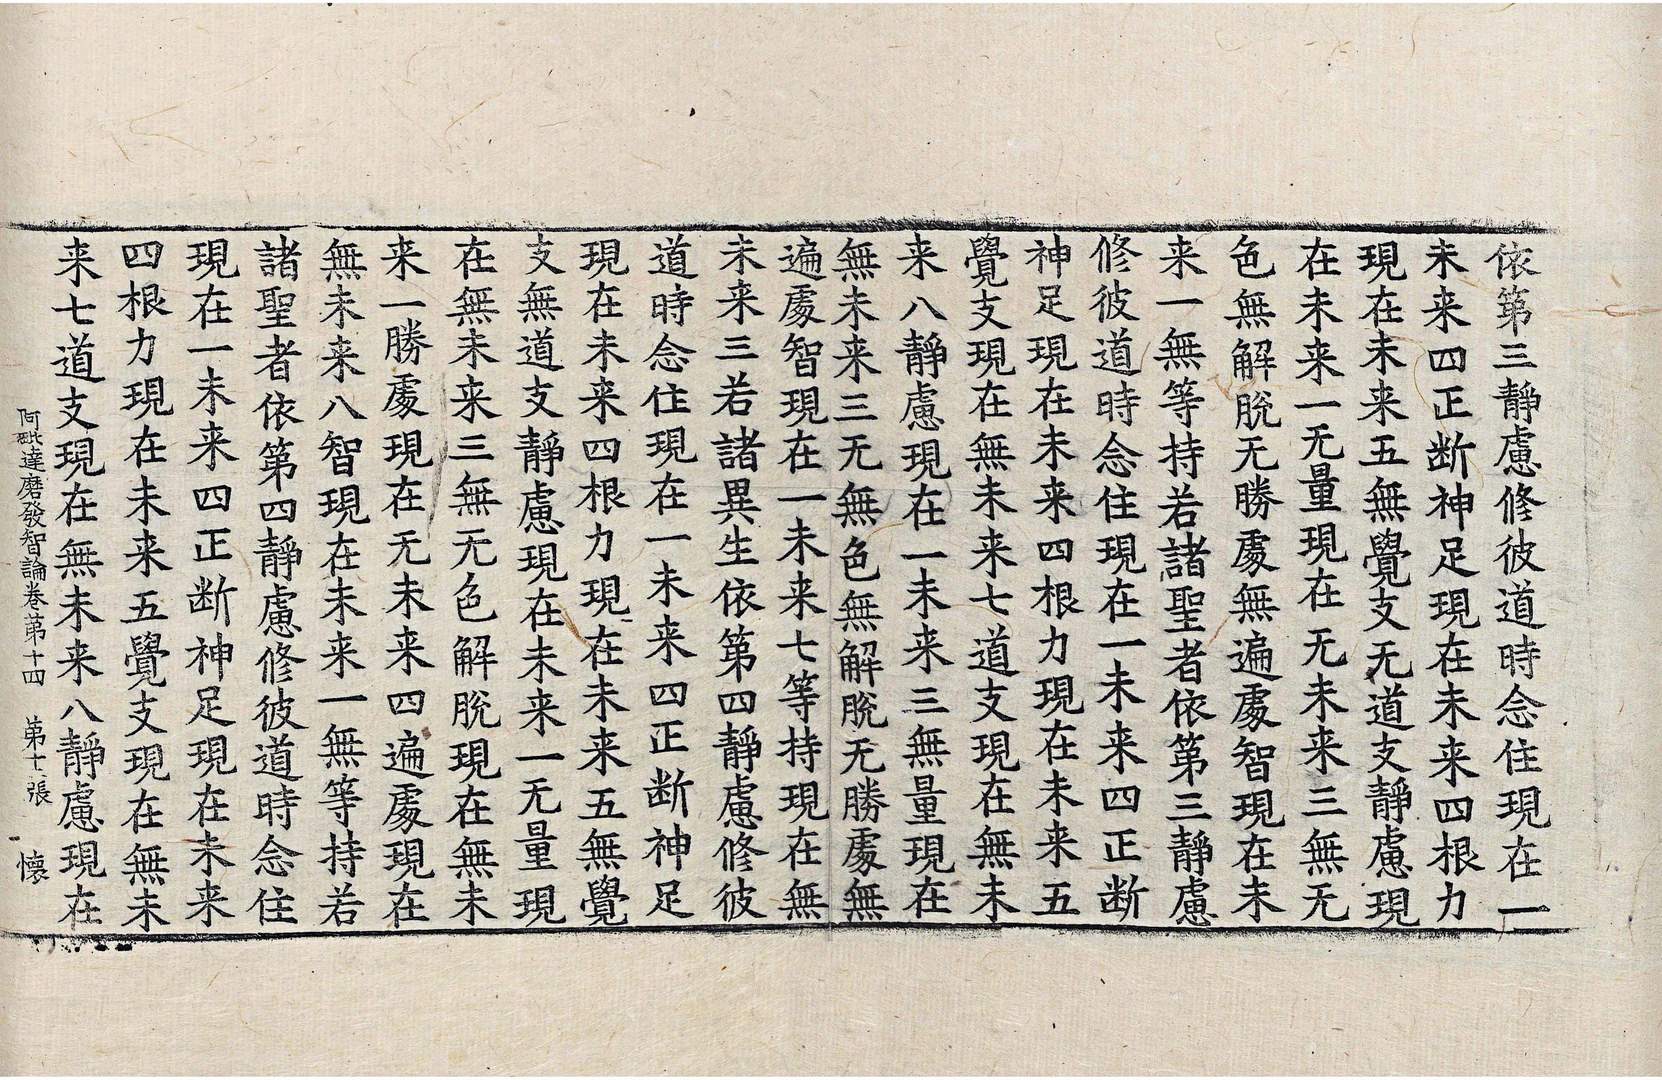 依第三靜慮修彼道時念住現在一
未来四正断神足現在未来四根力
現在未来五無覺支无道支靜慮現
在未来一无量現在无未来三無无
色無解脫无勝處無遍處智現在未
来一無等持若諸聖者依第三靜慮
修彼道時念住現在一未来四正断
神足現在未来四根力現在未来五
覺支現在無未来七道支現在無未
来八靜慮現在一未来三無量現在
無未来三无無色無解脫无勝處無
遍處智現在一未来七等持現在無
未来三若諸異生依第四靜慮修彼
道時念住現在一未来四正断神足
現在未来四根力現在未来五無覺
支無道支靜慮現在未来一无量現
在無未来三無无色解脫現在無未
来一勝處現在无未来四遍處現在
無未来八智現在未来一無等持若
諸聖者依第四靜慮修彼道時念住
現在一未来四正断神足現在未来
四根力現在未来五覺支現在無未
来七道支現在無未来八靜慮現在
阿毗達磨發智論卷苐十四 張 懷